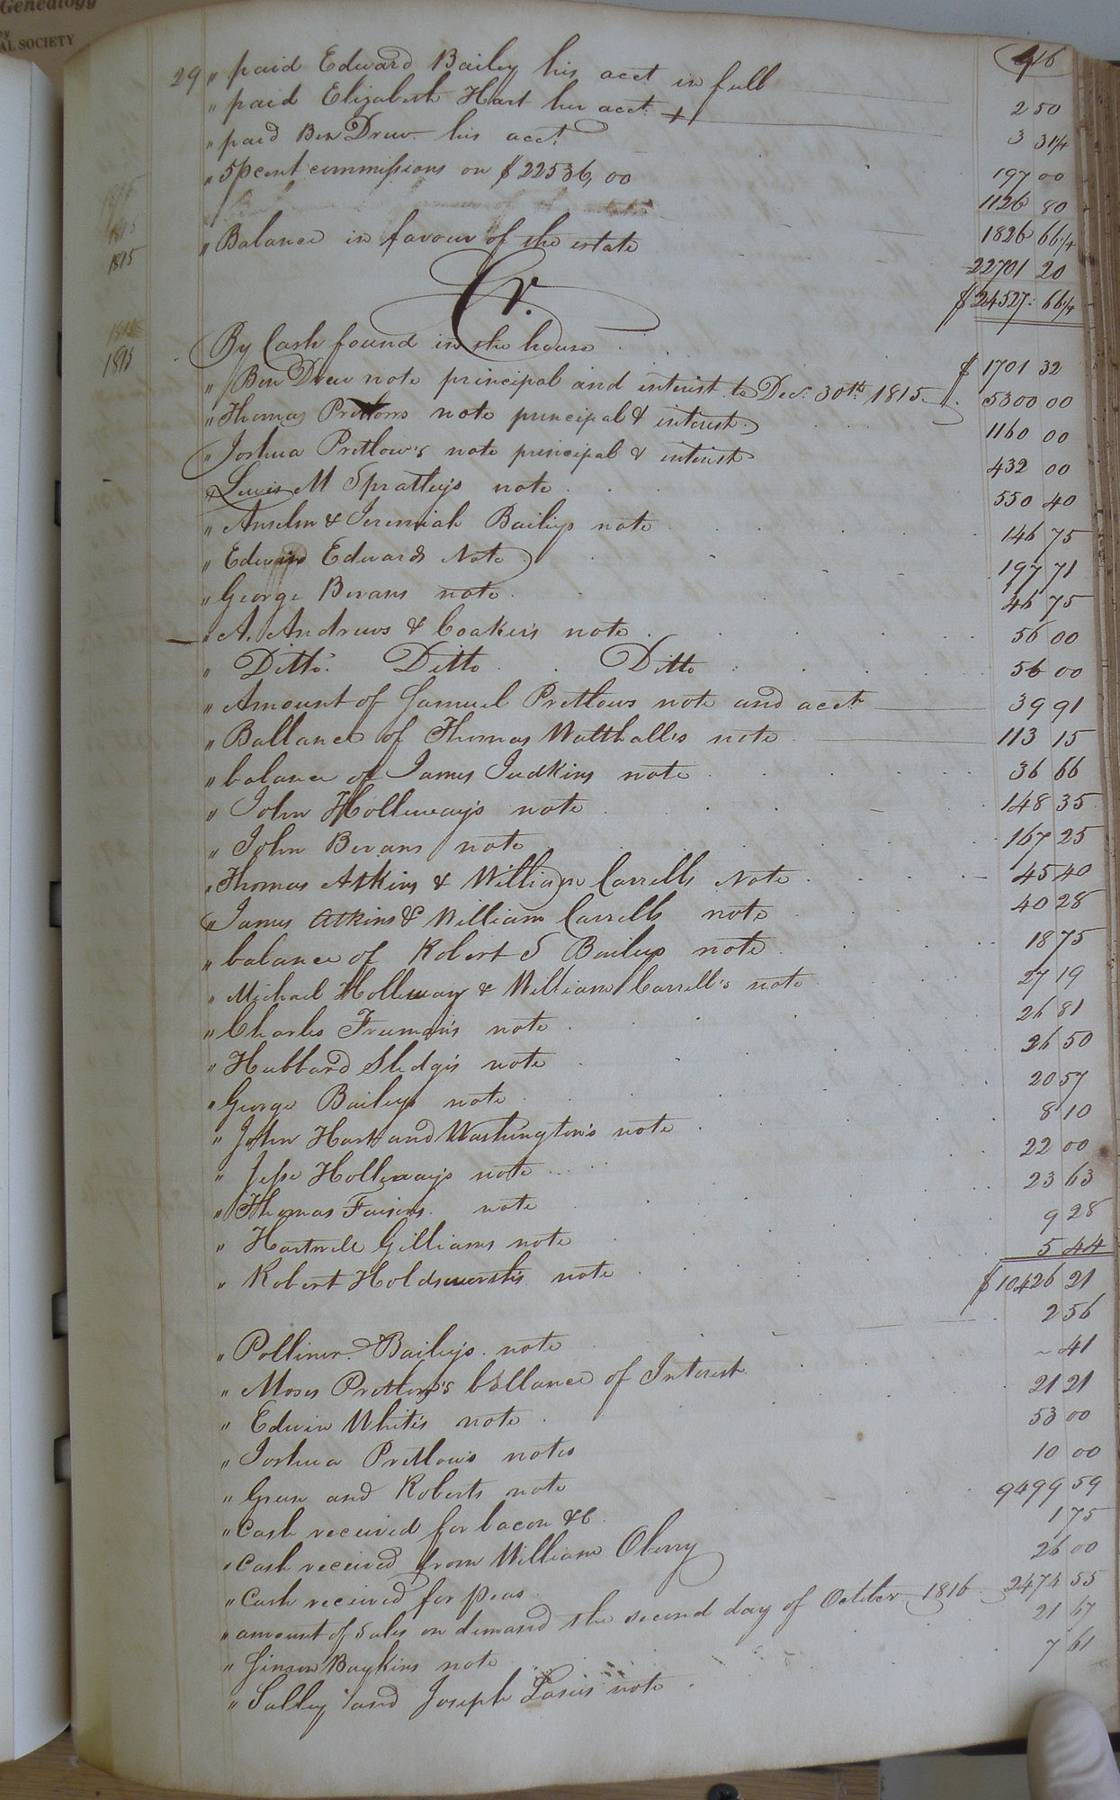 Genealogy
by
AL SOCIETY
46
29 " paid Edward Bailey his acct in full 2 50
" paid Elizabeth Hart her acct 3 31¼
" paid Ben Drew his acct 197 00
" 5 pcent commissions on $22536,00 1126 80
1826 66¼
1815 " Balance in favour of the estate 22701 20
$24527 66¼
Cr.
1815 By Cash found in the house $ 1701 32
" Ben Drew note principal and interest to Dec. 30th 1815 5300 00
" Thomas Pretlows note principal & interest 1160 00
" Joshua Pretlow's note principal & interest 432 00
" Lewis M Spratley's note 550 40
" Anselm & Jeremiah Baileys note 146 75
" Edwin Edwards Note 197 71
" George Bevans note 46 75
" A. Andrews & Coaker's note 56 00
" Ditto Ditto Ditto 56 00
" Amount of Samuel Pretlows note and acct 39 91
" Ballance of Thomas Walthall's note 113 15
" balance of James Judkins note 36 66
" John Holleway's note 148 35
" John Bevans note 167 25
" Thomas Atkins & William Carrells Note 45 40
" James Atkins & William Carrells note 40 28
" balance of Robert S Baileys note 18 75
" Michael Holleway & William Carrell's note 27 19
" Charles Freeman's note 26 81
" Hubbard Sledge's note 26 50
" George Baileys note 20 57
" John Hart and Washington's note 8 10
" Jesse Holleway's note 22 00
" Thomas Faisons note 23 63
" Hartwell Gilliams note 9 28
" Robert Holdsworth's note 5 44
$10426 21
" Bailey's note 2 56
" Moses Pretlow's ballance of Interest 41
" Edwin White's note 21 21
" Joshua Pretlow's notes 53 00
" Green and Roberts note 10 00
" Cash received for bacon &c 9499 59
" Cash received from William Oberry 1 75
" Cash received for peas 26 00
" amount of Sales on demand the second day of October 1816 2474 55
" Boykins note 21 67
" Salley and Joseph note 7 61